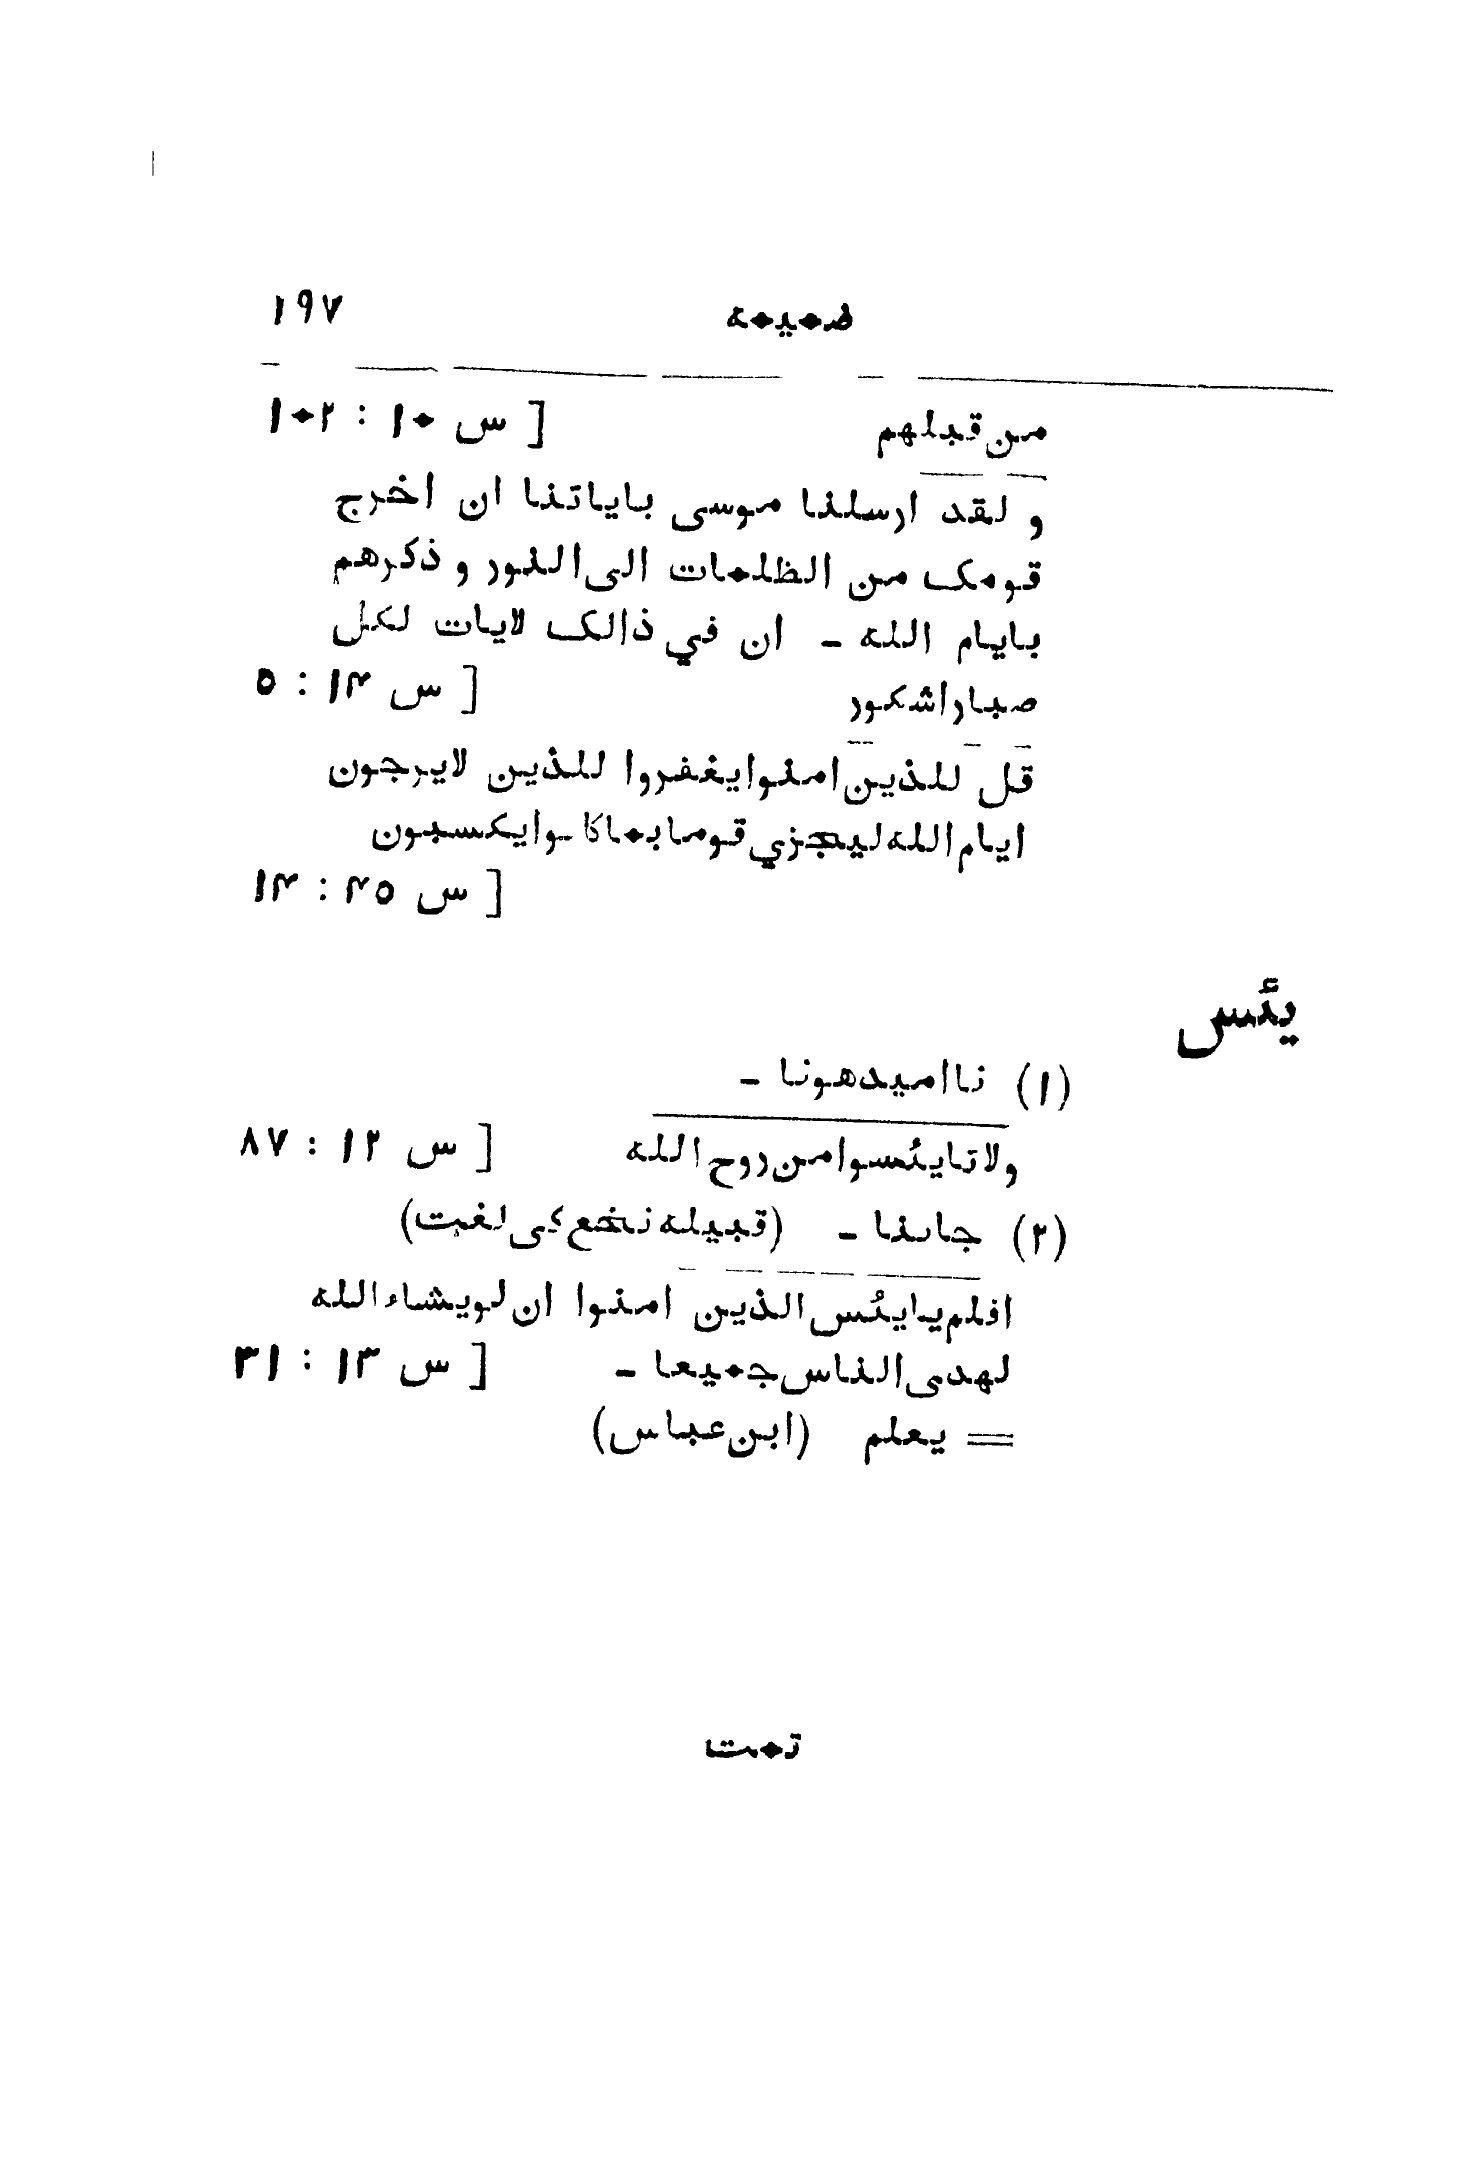 ضمیمہ ۱۹۷
من قبلهم [ س ۱۰ : ۱۰۲
و لقد ارسلنا موسى باياتنا ان اخرج
قومک من الظلمات الى النور و ذكرهم
بايام الله ـ ان في ذالک لايات لكل
صبار اشكور [ س ۱۴ : ۵
قل للذين امنوا يغفروا للذين لايرجون
ايام الله ليجزي قوما بما كانوا يكسبون
[ س ۴۵ : ۱۴
یئس
(۱) نا امید هونا ـ
ولا تايئسوا من روح الله [ س ۱۲ : ۸۷
(۲) جاننا ـ (قبیلہ نخع کی لغت)
افلم يايئس الذين امنوا ان لو يشاء الله
لهدى الناس جميعا ـ [ س ۱۳ : ۳۱
= يعلم (ابن عباس)
تمت